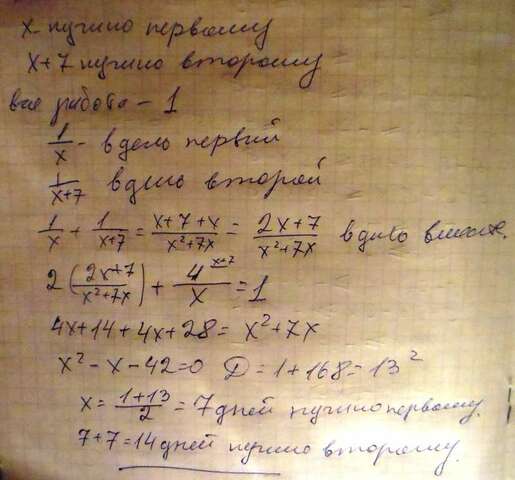 x нужно первому
x+7 нужно второму
вся работа - 1
1/x - в день первый
1/(x+7) в день второй
1/x + 1/(x+7) = (x+7+x)/(x²+7x) = (2x+7)/(x²+7x) в день вместе.
2((2x+7)/(x²+7x)) + 4/x \x+7 = 1
4x+14+4x+28 = x²+7x
x²-x-42=0 D=1+168=13²
x=(1+13)/2=7 дней нужно первому.
7+7=14 дней нужно второму.